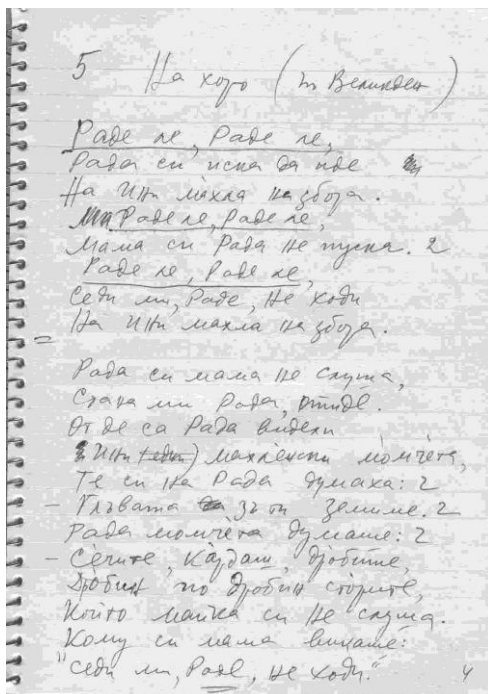 5 На хоро (на Великден)
Раде ле, Раде ле,
Рада си иска да иде
На Ини махла на збора.
Раде ле, Раде ле,
Мама си Рада не пуска. 2
Раде ле, Раде ле,
Седи ми, Раде, не ходи
На Ини махла на збора.
=
Рада си мама не слуша,
Стана ми Рада, отиде.
От де са Рада видели
Ини махленски момчета,
Те си на Рада думаха: 2
- Главата зъ ти земиме. 2
Рада момчета думаше: 2
- Сечите, Кардаш, дробите,
Дробин по дробин сторите,
Който майка си не слуша.
Кому си мама викаше:
"Седи ми, Раде, не ходи."
4